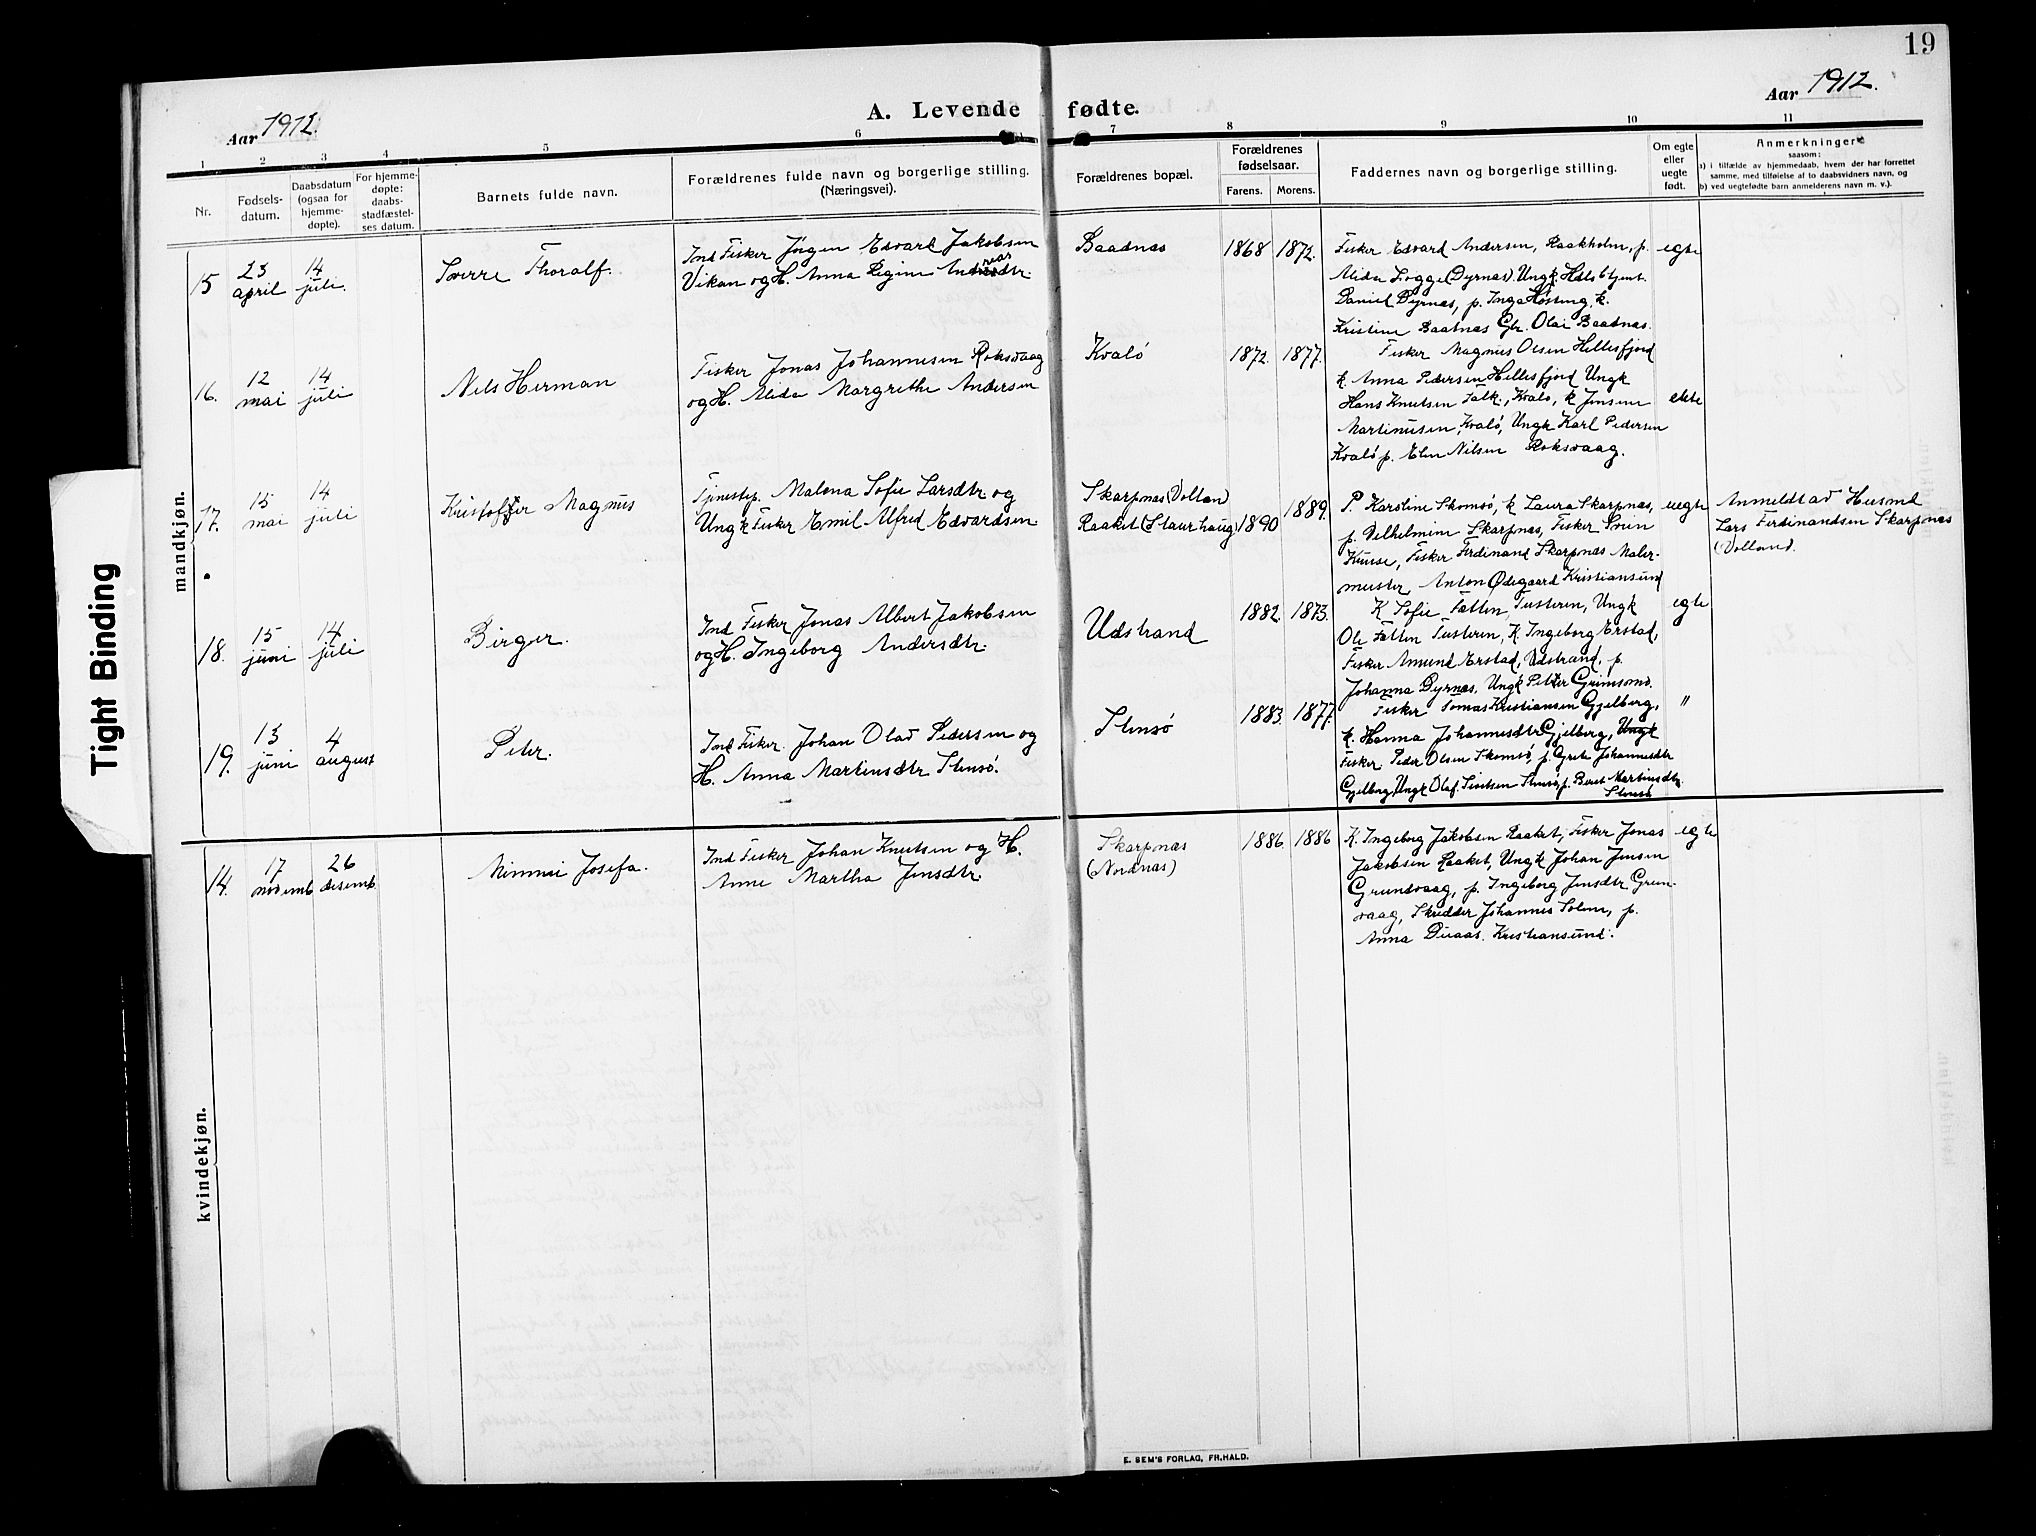 19
Aar 1912.
A. Levende fødte.
Aar 1912.
1 2 3 4 5 6 7 8 9 10 11
Nr.
Fødsels-
datum.
Daabsdatum
(ogsaa for
hjemme-
døpte).
For hjemme-
døpte:
daabs-
stadfæstel-
ses datum.
Barnets fulde navn.
Forældrenes fulde navn og borgerlige stilling.
(Næringsvei).
Forældrenes bopæl.
Forældrenes
fødselsaar.
Farens. Morens.
Faddernes navn og borgerlige stilling.
Om egte
eller
uegte
født.
Anmerkninger
saasom:
a) i tilfælde av hjemmedaab, hvem der har forrettet
samme, med tilføielse af to daabsvidners navn, og
b) ved uegtefødte barn anmelderens navn m. v.).
mandkjøn.
15
23
april
14
juli.
Sverre Thoralf.
Ind Fisker Jörgen Edvard Jakobsen
Vikan og H. Anna Regine
Baadnas
1868 1872.
Fisker Edvard Andersen, Raakholm, p.
Alida (Dyrnas). Ungk.
Daniel Dyrnas, p. Inga k.
Kristine Baadnas Gbr. Olai Baadnas.
egte
16.
12
mai
14
juli
Nels Herman
Fisker Jonas Johannesen Roksvaag
og H. Alida Margrethe Andersen
Kvalö
1872. 1877.
Fisker Magnus Olsen Hellesfjord
k. Anna Pedersen Hellesfjord Ungk
Hans Knutsen Kvalö, k Jensine
Martinusen, Kvalö, Ungk Karl Pedersen
Kvalö p. Elen Nilsen Roksvaag.
ekte
17.
15
mai
14
juli
Kristoffer Magnus
Tjenestep. Malena Sofie Larsdtr og
Ungk Fisker Emil Alfred Edvardsen
Skarpnas (Volland)
Raaket (Staurhaug)
1890 1889.
P. Karstine Skomsö, k Laura Skarpnas,
p. Vilhelmine Skarpnas, Fisker
Fisker Ferdinand Skarpnas Maler-
mester Anton Ødegaard Kristiansund
uegte
Anmeldt av Husmd
Lars Ferdinandsen Skarpnas
(Volland.
18.
15
juni
14
juli
Birger.
Ind Fisker Jonas Albert Jakobsen
og H. Ingeborg Andersdtr.
Udstrand
1882. 1873.
K Sofie Fætten Tusteren, Ungk
Ole Fætten Tusteren, K. Ingeborg Erstad,
Fisker Amund Erstad, Udstrand, p.
Johanna Dyrnas, Ungk Petter
egte
19.
13
juni
4
august
Peter.
Ind Fisker Johan Olav Pedersen og
H. Anna Martinsdtr Stensö.
Stensö
1883 1877.
Fisker Tomas Kristiansen Gjelberg,
k. Hanna Johannesdtr Gjelberg, Ungk
Fisker Peder Olsen Skomsö, p. Grete Johannesdtr
Gjelberg, Ungk Olaf Stensö, p. Beret Martinsdtr
Stensö
"
kvindekjøn.
14.
17
novemb
26
desemb
Mimmi Josefa.
Ind Fisker Johan Knutsen og H.
Anne Martha Jensdtr.
Skarpnas
(Nordnas)
1886. 1886
K. Ingeborg Jakobsen Raaket, Fisker Jonas
Jakobsen Raaket, Ungk Johan Jensen
Grundvaag, p. Ingeborg Jensdtr Grun-
vaag, Skredder Johannes Solem, p.
Anna Kristiansund.
egte
Tight Binding
E. SEM'S FORLAG, FR.HALD.